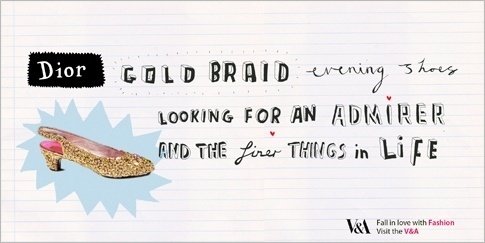 Dior GOLD BRAID evening shoes
LOOKING FOR AN ADMIRER
AND THE finer THINGS in LiFE
V&A Fall in love with Fashion
Visit the V&A